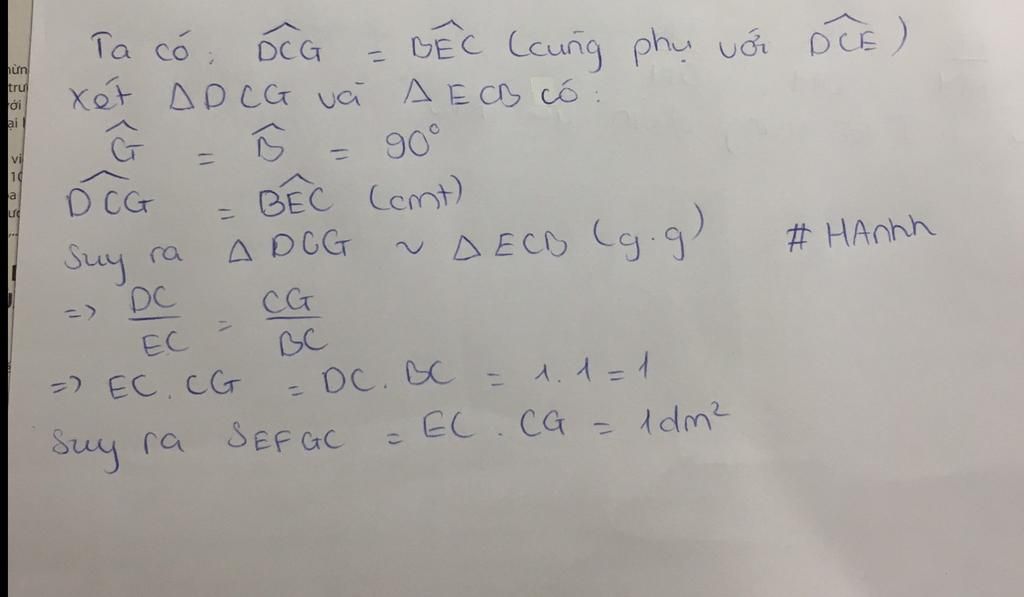 Ta có: DĈG = BÊC (cùng phụ với DĈE)
Xét Δ DCG và Δ ECB có:
Ĝ = B̂ = 90°
DĈG = BÊC (cmt)
Suy ra Δ DCG ~ Δ ECB (g.g)
# HAnhh
=> DC/EC = CG/BC
=> EC.CG = DC.BC = 1.1=1
Suy ra SEFGC = EC.CG = 1dm²